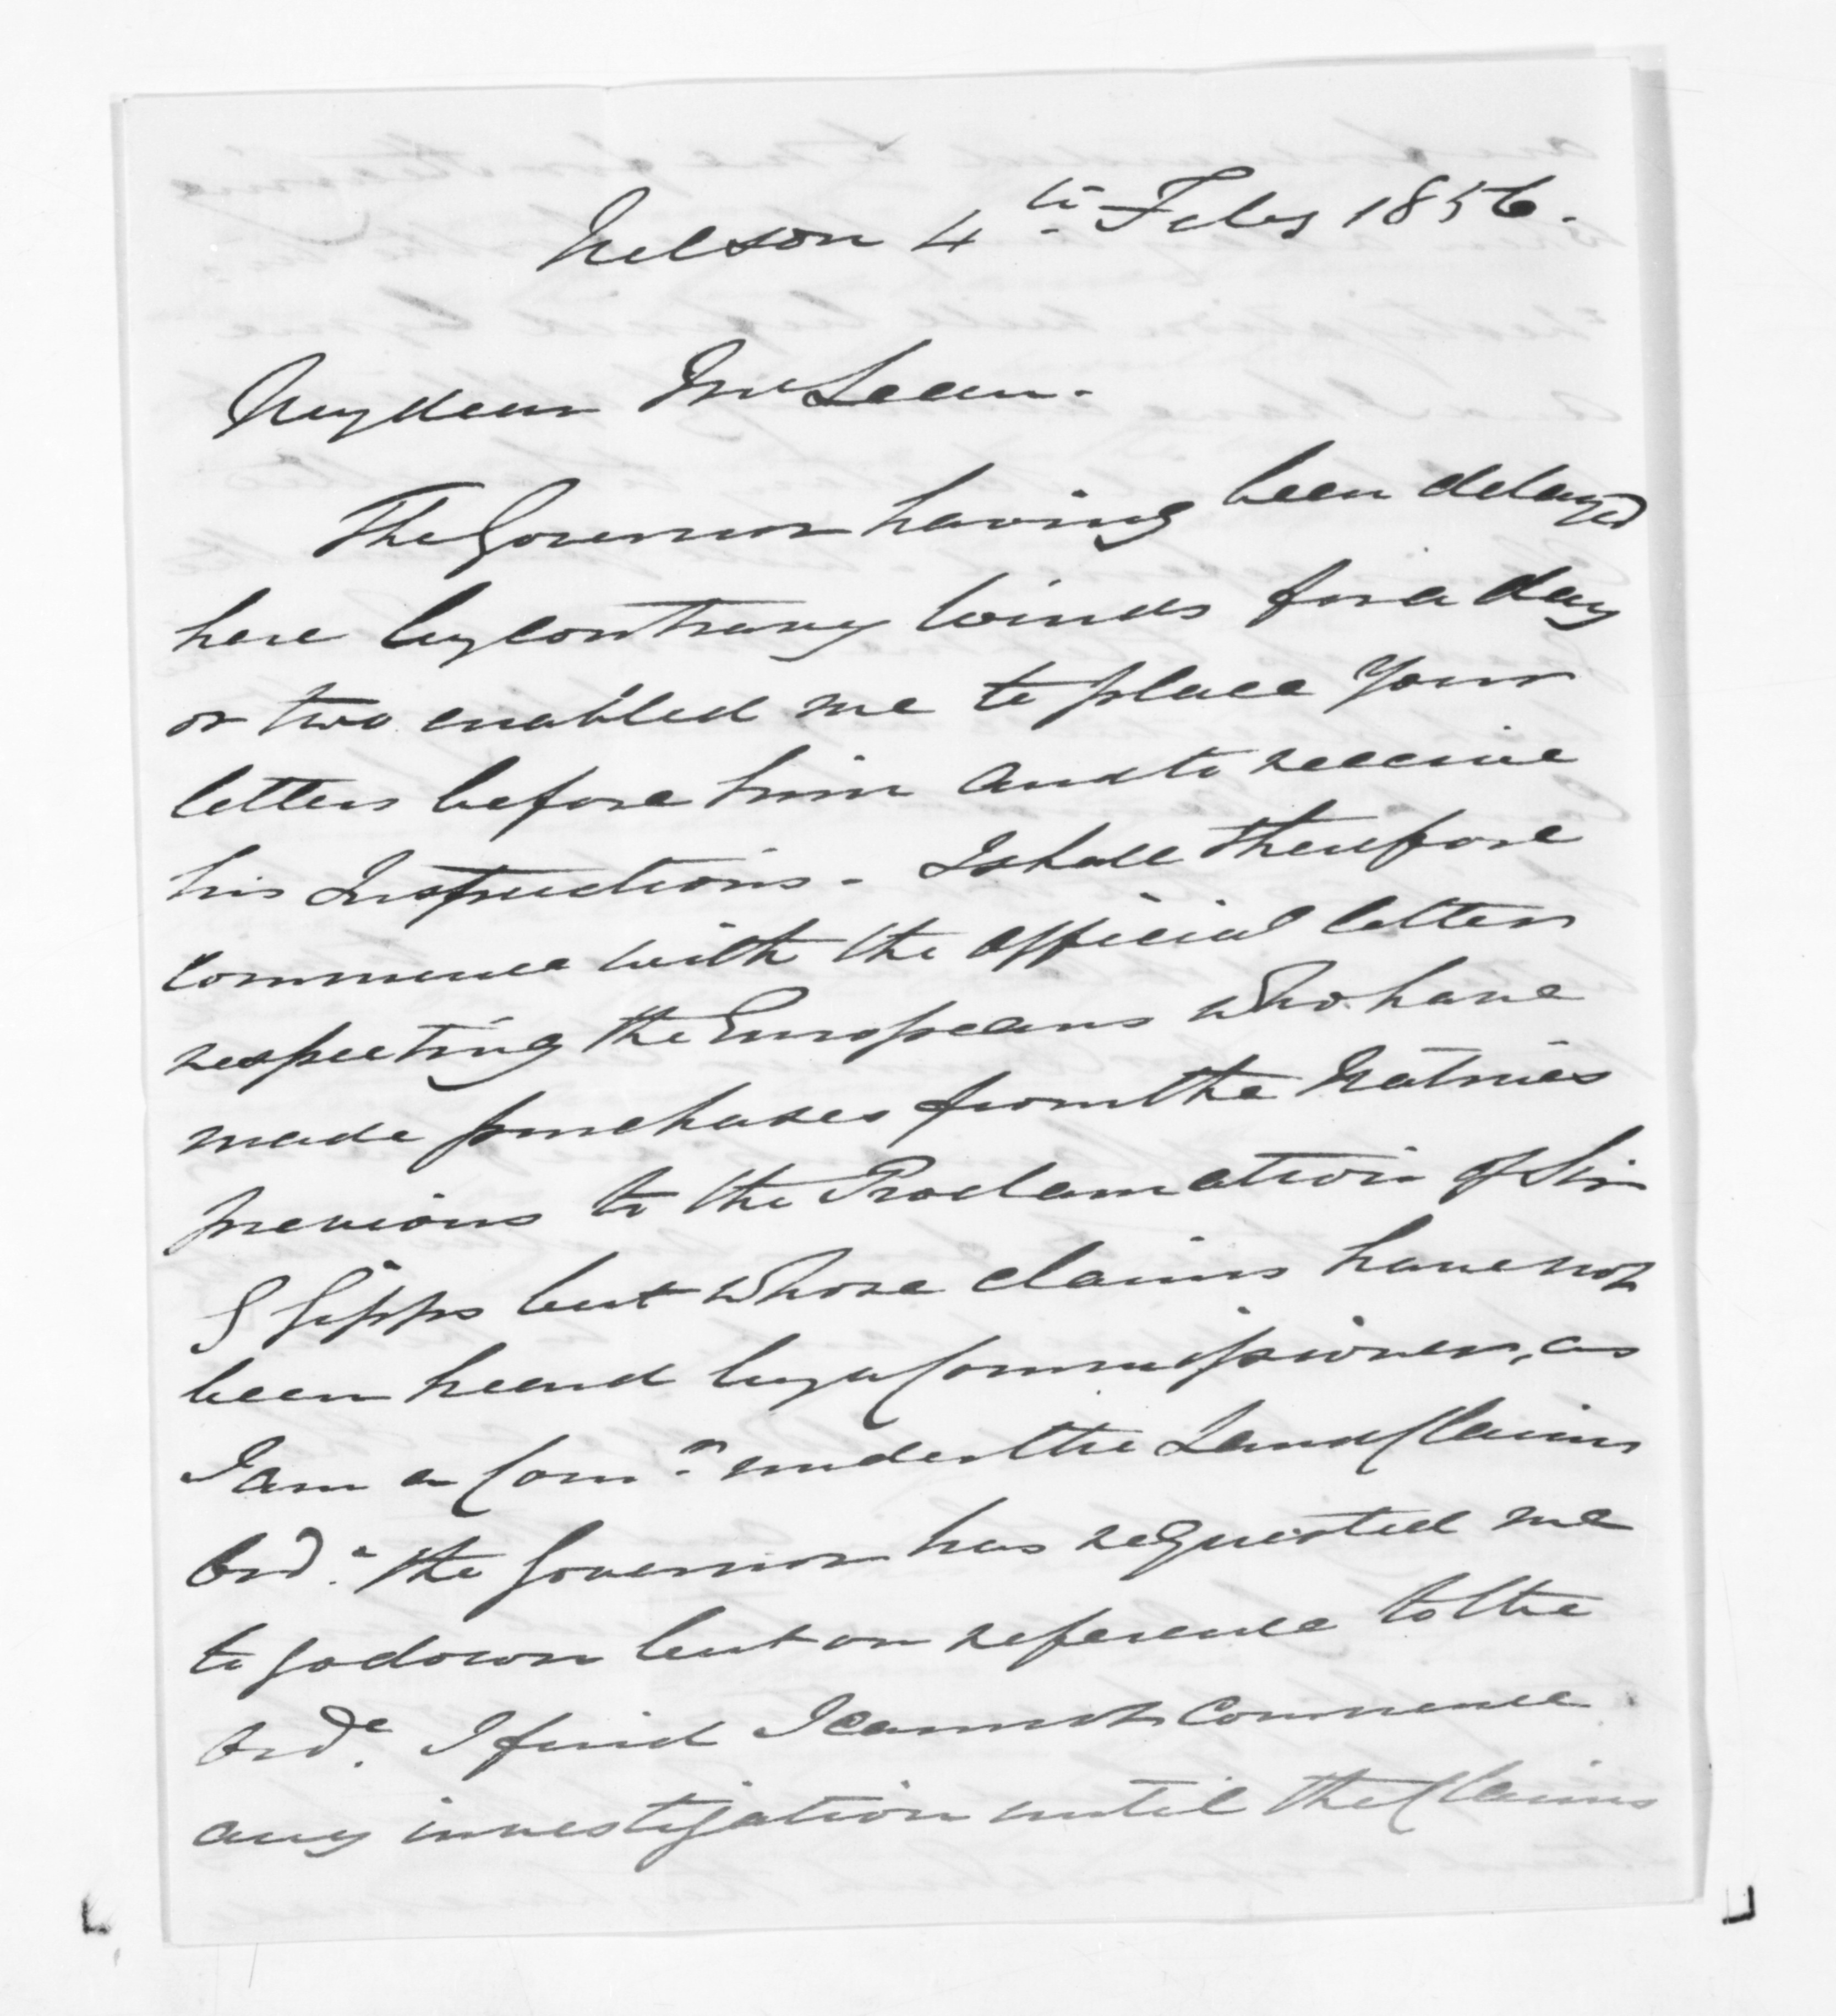 Nelson 4th Feby 1856.
My dear McLean.
The Governor having been delayed
here by contrary winds for a day
or two enabled me to place your
letters before him and to receive
his Instructions. I shall therefore
commence with the official letter
respecting the Europeans who have
made purchases from the Natives
previous to the Proclamation of Sir
G Gipps but whose claims have not
been heard by a Commissioner, as
I am a Comr. under the Land Claims
Orde. the Governor has requested me
to go down but on reference to the
Orde. I find I cannot commence
any investigation until the Claims